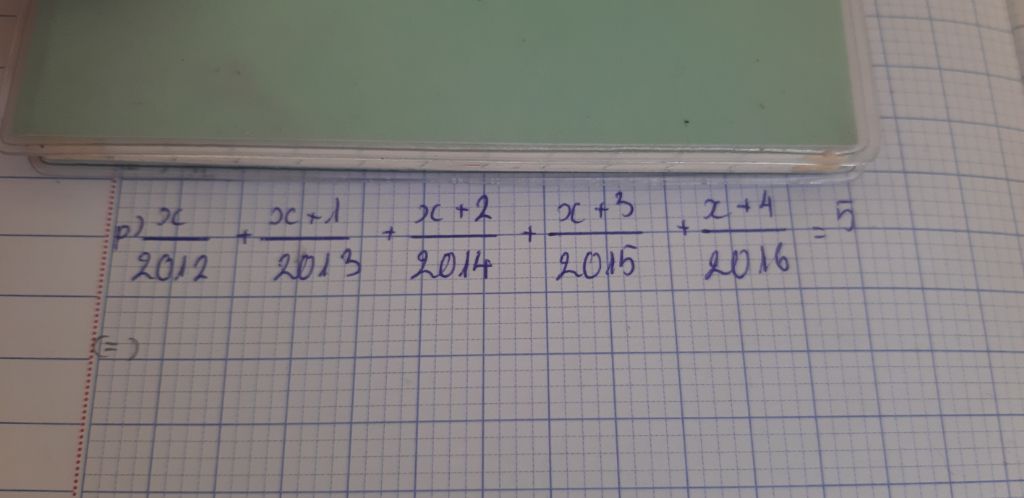 p) x/2012 + x+1/2013 + x+2/2014 + x+3/2015 + x+4/2016 = 5
(=)